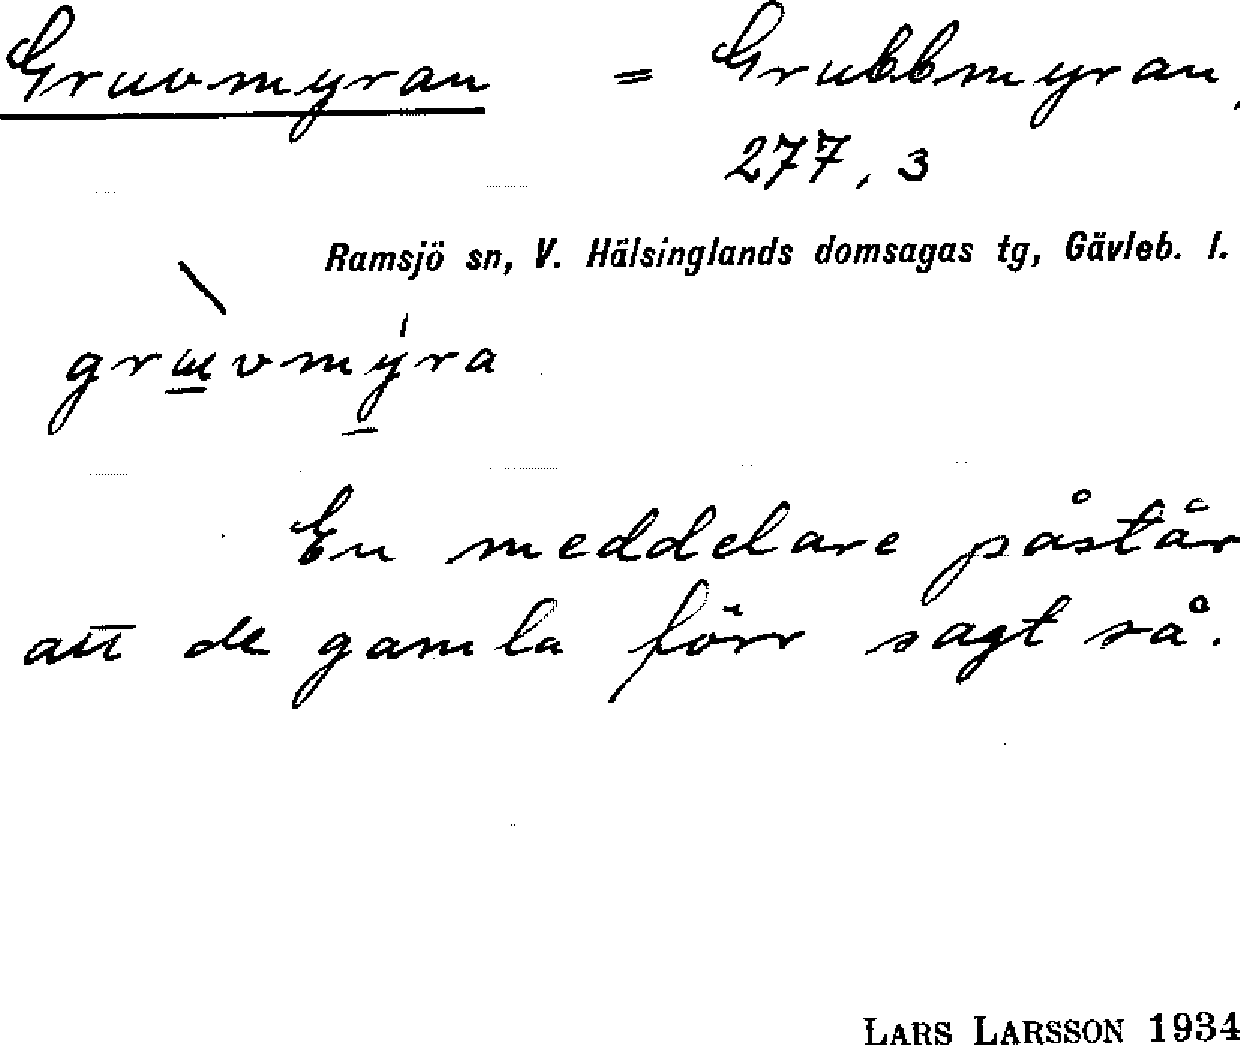 Gruvmyran = Grubbmyran,
277, 3
Ramsjö sn, V. Hälsinglands domsagas tg, Gävleb. l.
gruvmýra
En meddelare påstår
att de gamla förr sagt så.
LARS LARSSON 1934